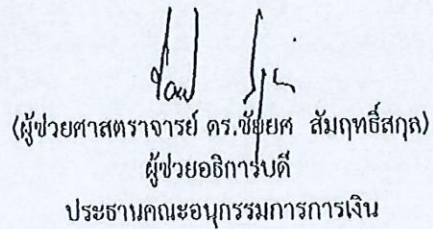 (ผู้ช่วยศาสตราจารย์ ดร.ชัยยศ สัมฤทธิ์สกุล)
ผู้ช่วยอธิการบดี
ประธานคณะอนุกรรมการการเงิน